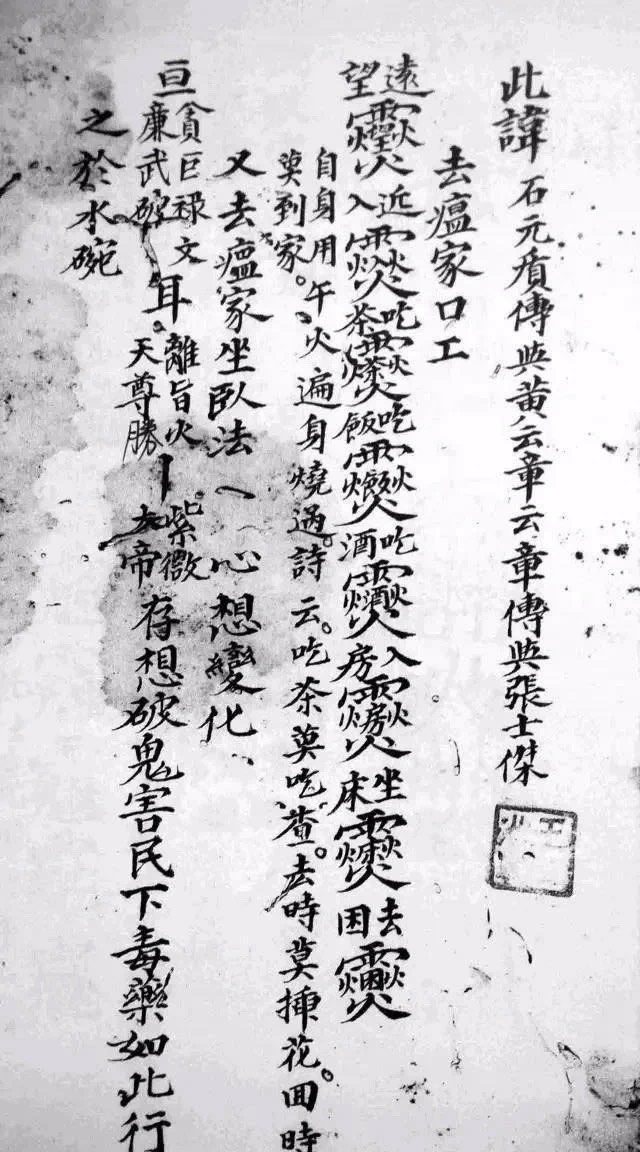 此諱 石元賔傳與黃云章云章傳與張士傑
去瘟家口工
遠望 近入 吃茶 吃飯 吃酒 入房 坐床 去困
自身用午、火遍身燒過。詩云。吃茶莫吃、渣。去時莫揷花。囬時
莫到家。
又去瘟家坐臥法乀心想變化、
亘貪巨祿文廉武破耳。離旨火天尊勝丨紫微大帝存想破鬼害民下毒藥如此行
之於水碗